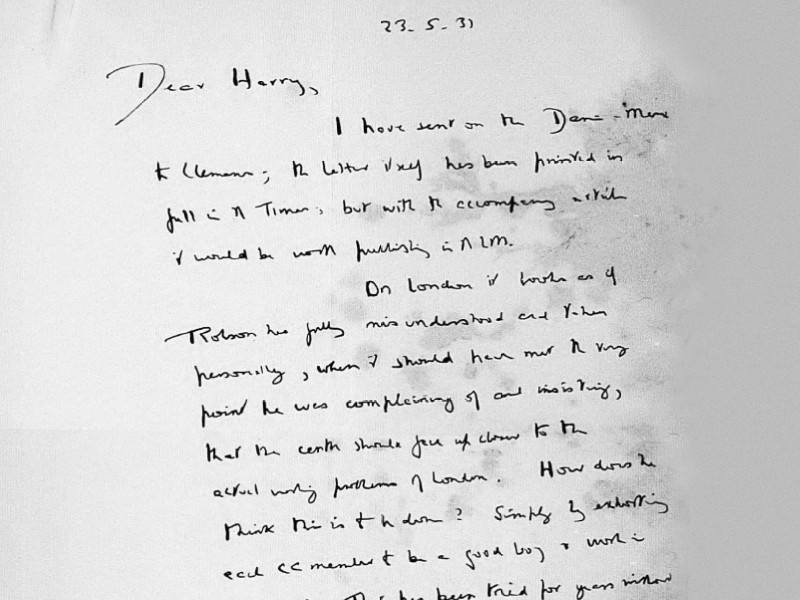 23-5-31
Dear Harry,
I have sent on the
to Clemens; the letter itself has been printed in
full in the Times, but with the accompany article
it would be worth publishing in the LM.
On London it looks as if
Robson has fully misunderstood and taken
personally, when it should have met the very
point he was complaining of and insisting,
that the centre should face up closer to the
actual working problems of London. How does he
think this is to be done? Simply by exhorting
each CC member to be a good boy & work in
has been tried for years without